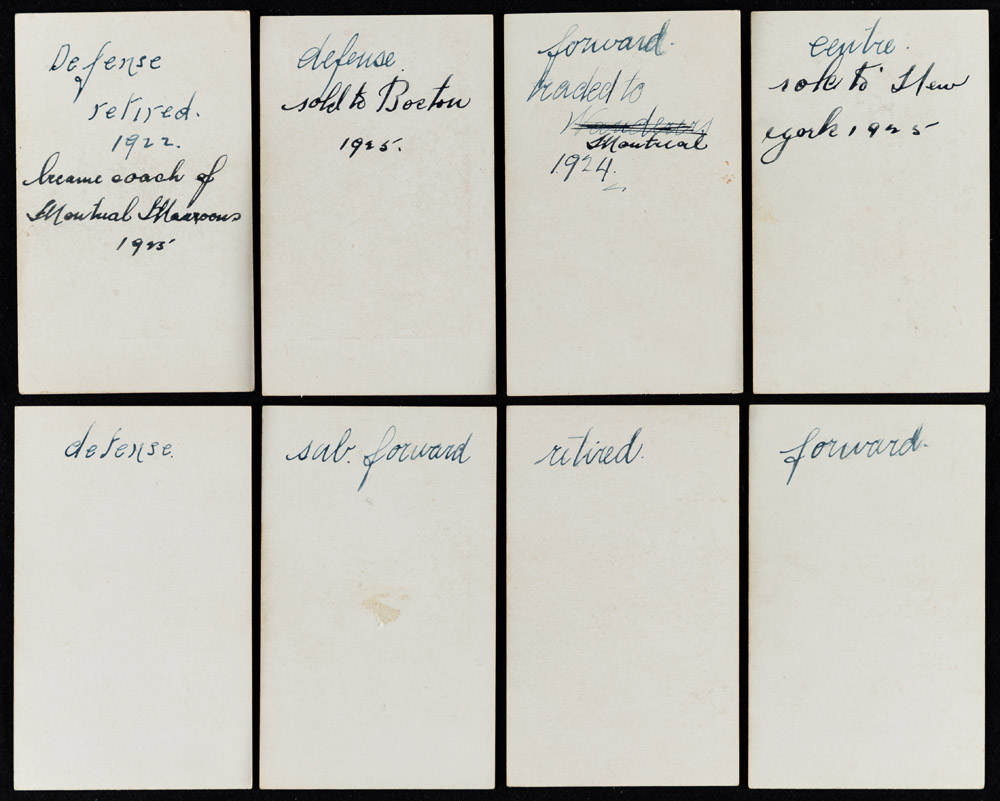 Defense
retired.
1922.
became coach of
Montreal Maaroons
1925
defense.
sold to Boston
1925.
forward.
traded to
Wanderers
Montreal
1924.
centre.
sold to New
york 1925
defense.
sub. forward
retired.
forward.